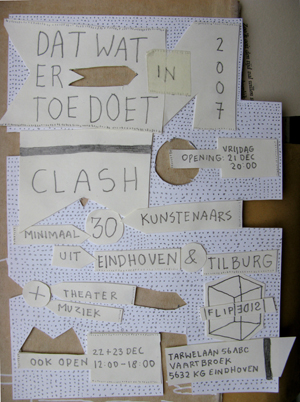 DAT WAT
ER IN
TOE DOET
2007
VRIJDAG
OPENING: 21 DEC
20.00
CLASH
MINIMAAL 30 KUNSTENAARS
UIT EINDHOVEN & TILBURG
+ THEATER
MUZIEK
FLIPSIDE
OOK OPEN
22 + 23 DEC
12.00 - 18.00
TARWELAAN 56 ABC
VAARTBROEK
5632 KG EINDHOVEN